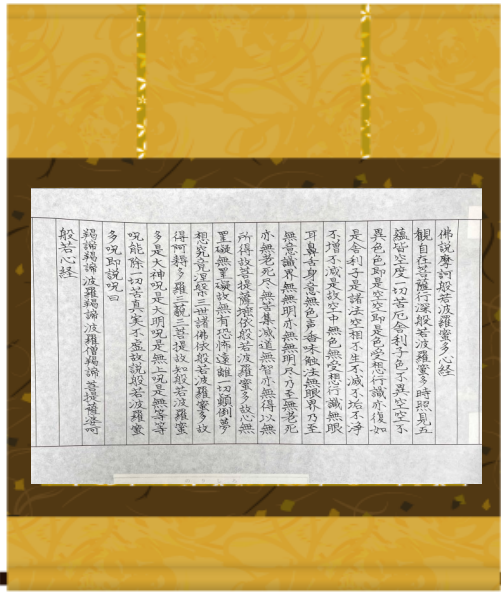 佛説摩訶般若波羅蜜多心経
観自在菩薩行深般若波羅蜜多時照見五
蘊皆空度一切苦厄舎利子色不異空空不
異色色即是空空即是色受想行識亦復如
是舎利子是諸法空相不生不滅不垢不浄
不増不減是故空中無色無受想行識無眼
耳鼻舌身意無色声香味触法無眼界乃至
無意識界無無明亦無無明尽乃至無老死
亦無老死尽無苦集滅道無智亦無得以無
所得故菩提薩埵依般若波羅蜜多故心無
罣礙無罣礙故無有恐怖遠離一切顛倒夢
想究竟涅槃三世諸佛依般若波羅蜜多故
得阿耨多羅三藐三菩提故知般若波羅蜜
多是大神呪是大明呪是無上呪是無等等
呪能除一切苦真実不虚故説般若波羅蜜
多呪即説呪曰
羯諦羯諦波羅羯諦波羅僧羯諦菩提薩婆呵
般若心経